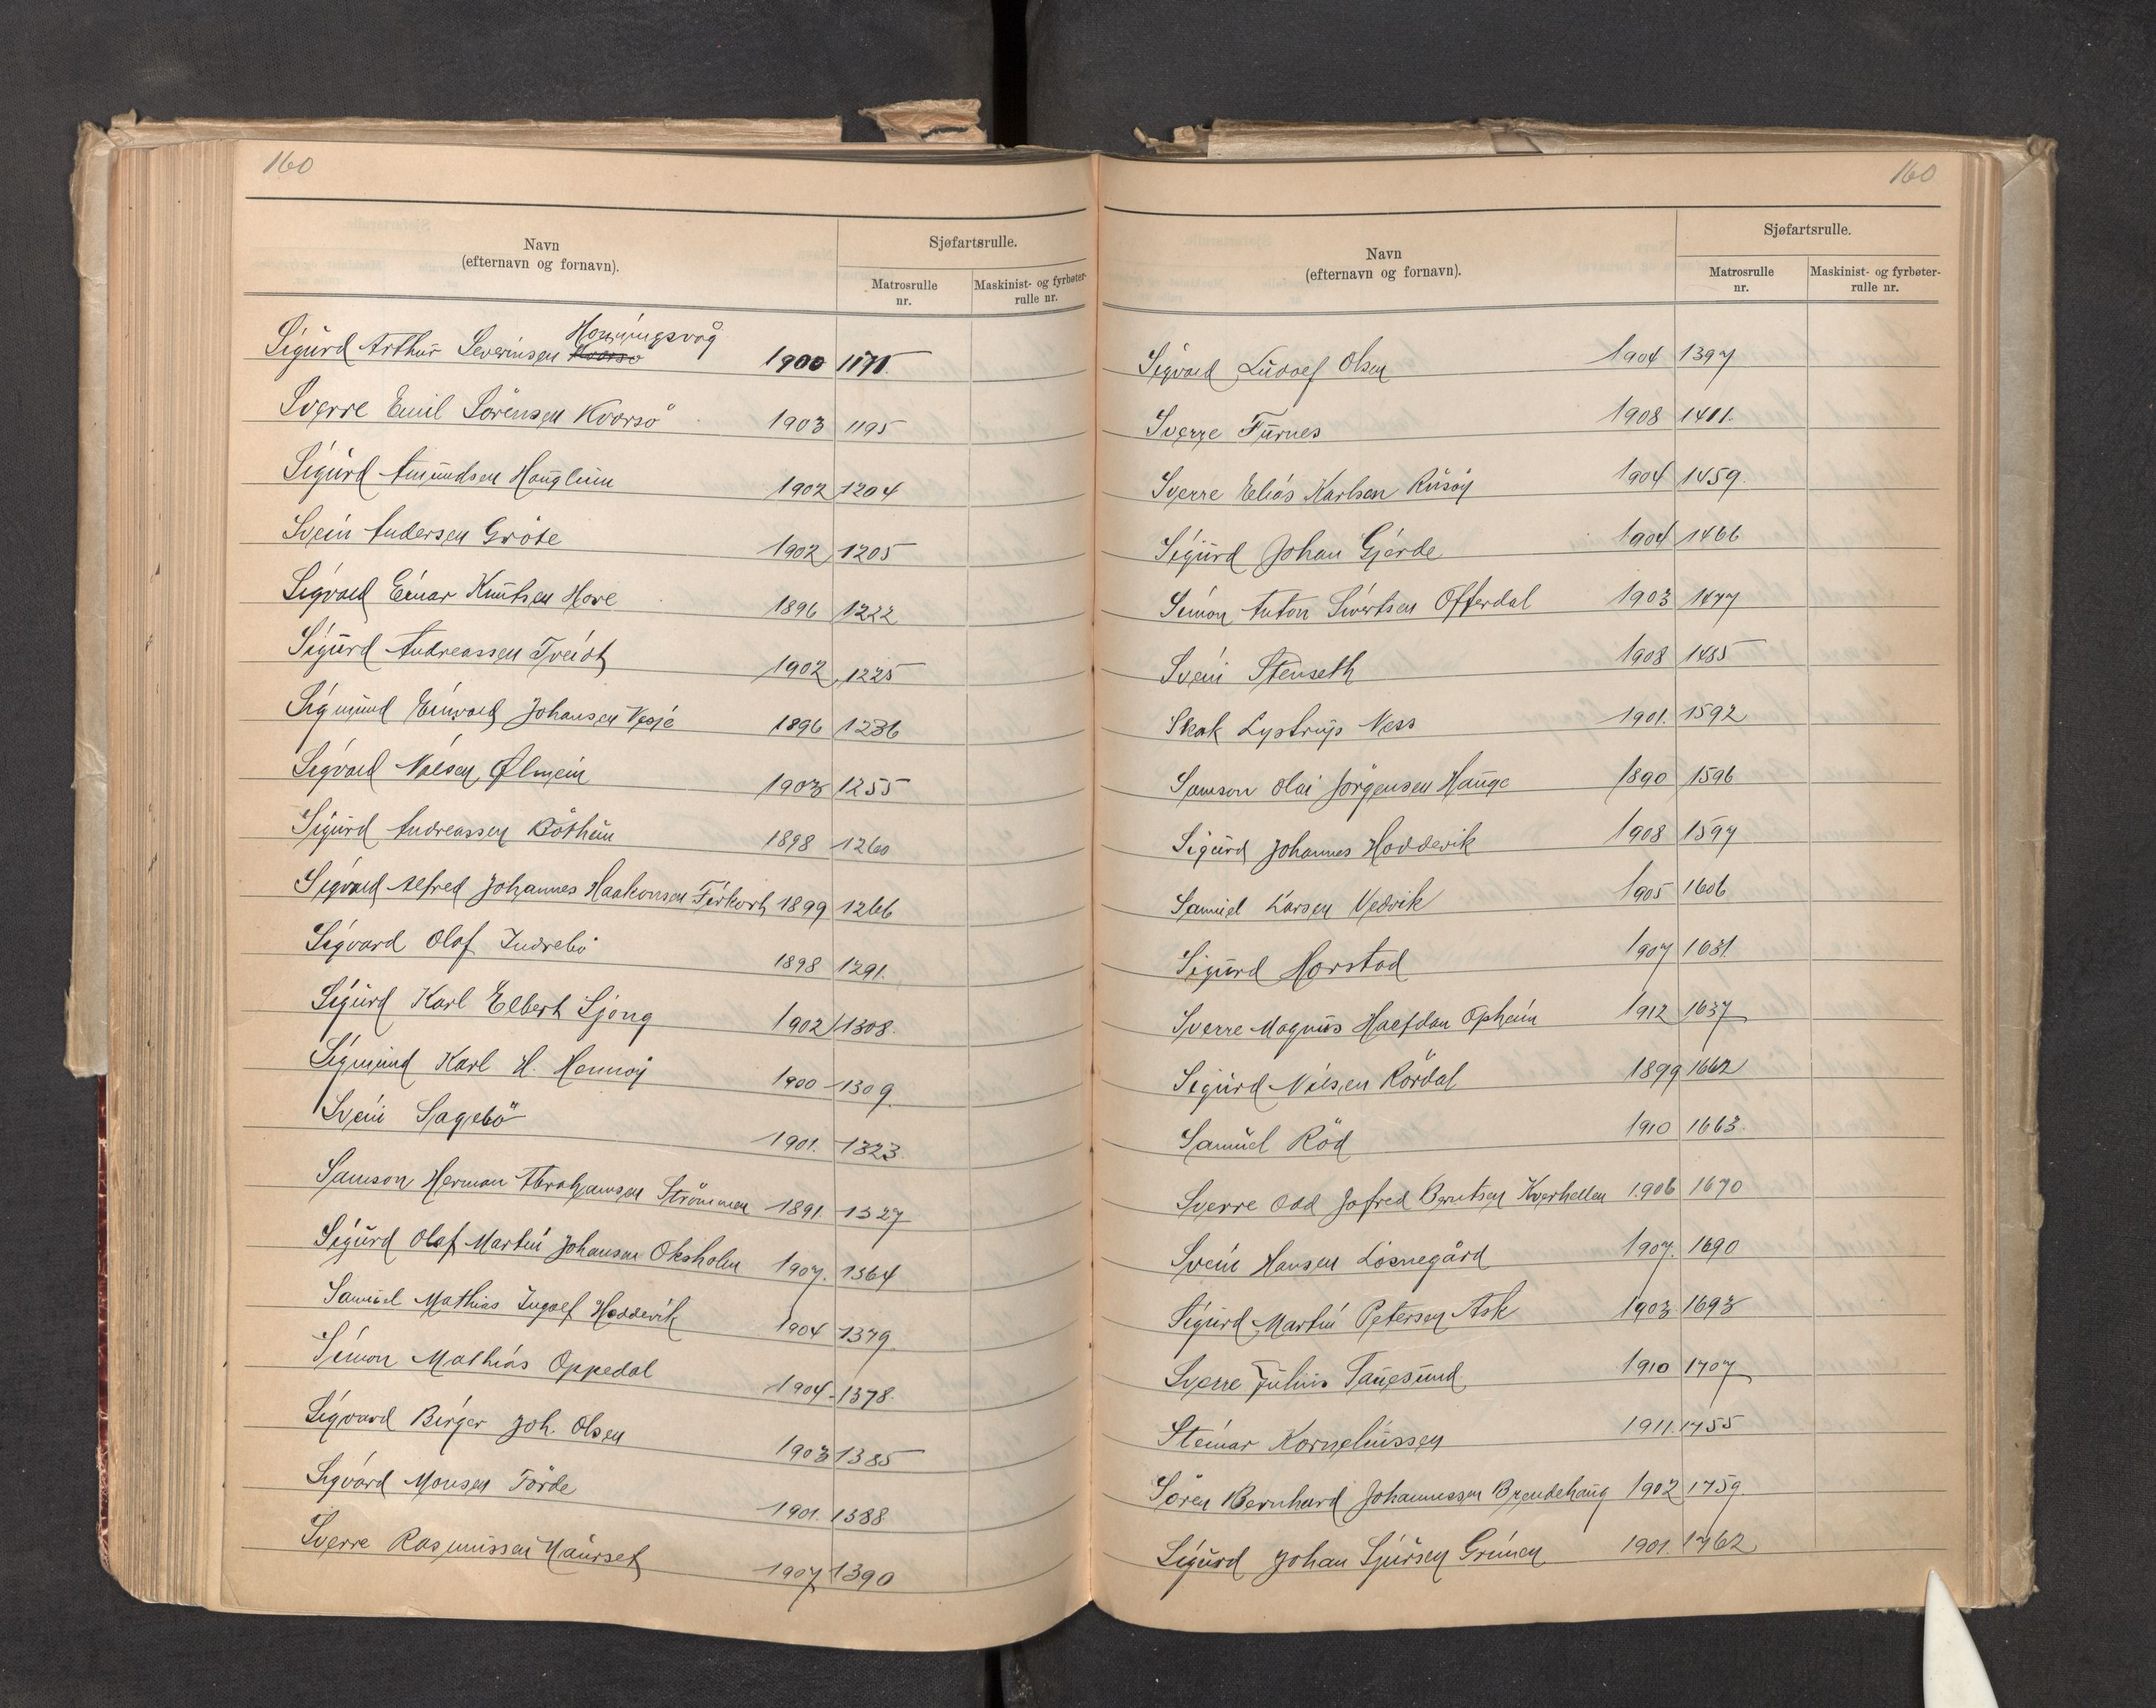 160
Navn
(efternavn og fornavn).
Sjøfartsrulle.
Matrosrulle
nr.
Maskinist- og fyrbøter-
rulle nr.
Honningsvåg
Sigurd Arthur Severinsen Kvorsø 1900 1171.
Sverre Emil Sörensen Kvorsö 1903 1195
Sigurd Amundsen Hauglum 1902 1204
Svein Andersen Gröte 1902 1205
Sigvald Einar Knutsen Hove 1896 1222
Sigurd Andreassen Tveidt 1902 1225
Sigmund Einvald Johansen 1896 1236
Sigvald Nilsen Ølmein 1903 1255
Sigurd Andreassen Böthun 1898 1260
Sigvald Alfred Johannes Haakonsen 1899 1266
Sigvard Olaf Indrebö 1898 1291.
Sigurd Karl Elbert Sjong 1902 1308.
Sigmund Karl H. Hennøy 1900 1309
Svein Sagebö 1901. 1323.
Samson Herman Abrahamsen Strömmen 1891. 1327
Sigurd Olaf Martin Johansen Oksholm 1907. 1364
Samuel Mathias Ingolf Hoddevik 1904 1379
Simon Mathias Oppedal 1904 1378.
Sigvard Birger Joh. Olsen 1903 1385
Sigvard Monsen Förde 1901. 1388
Sverre Rasmussen Maurset 1907 1390
160
Navn
(efternavn og fornavn).
Sjøfartsrulle.
Matrosrulle
nr.
Maskinist- og fyrbøter-
rulle nr.
Sigvald Ludolf Olsen 1904 1397
Sverre Furnes 1908 1411.
Sverre Eliás Karlsen Risöy 1904 1459.
Sigurd Johan Gjerde 1904 1466
Simon Anton Sivertsen Offerdal 1903 1477
Svein Stenseth 1908 1485
Skak Lystrup Ness 1901. 1592
Samson Olai Jörgensen Hauge 1890 1596
Sigurd Johannes Hoddevik 1908 1597
Samuel Larsen Vedvik 1905 1606
Sigurd Horstad 1907 1631.
Sverre Magnus Halfdan Opheim 1912 1637
Sigurd Nilsen Rördal 1899 1662
Samuel Röd 1910 1663.
Sverre Odd Jofred Berntsen Kverhellen 1906 1670
Svein Hansen Losnegård 1907. 1690
Sigurd Martin Petersen Ask 1903 1693
Sverre Julius Tangesund 1910 1707
Steinar Korneliussen 1911. 1755
Sören Bernhard Johannessen Brendehaug 1902 1759
Sigurd Johan Sjursen Grinen 1901. 1762